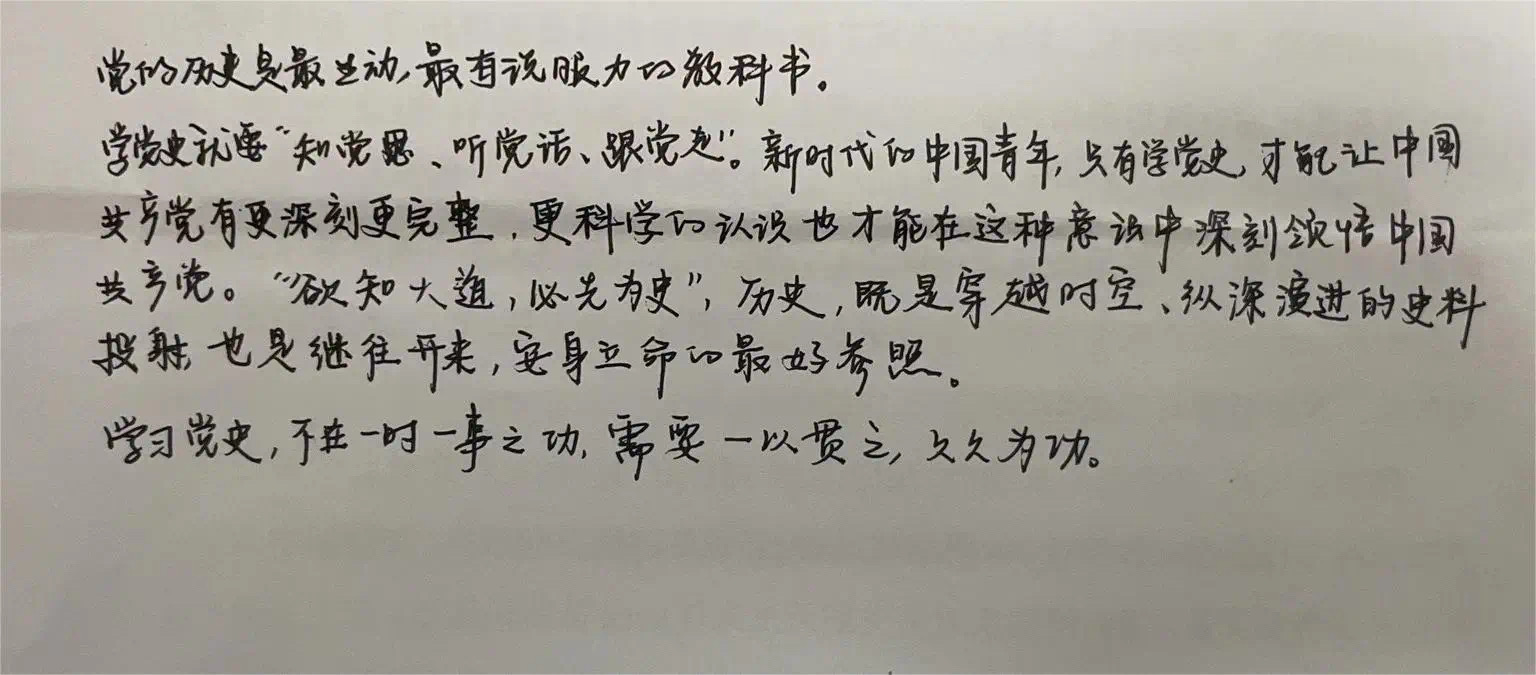 党的历史是最生动,最有说服力的教科书。
学党史就要“知党恩、听党话、跟党走”。新时代的中国青年,只有学党史,才能让中国
共产党有更深刻更完整,更科学的认识也才能在这种意识中深刻领悟中国
共产党。“欲知大道,必先为史”,历史,既是穿越时空、纵深演进的史料
投射,也是继往开来,安身立命的最好参照。
学习党史,不在一时一事之功,需要一以贯之,久久为功。